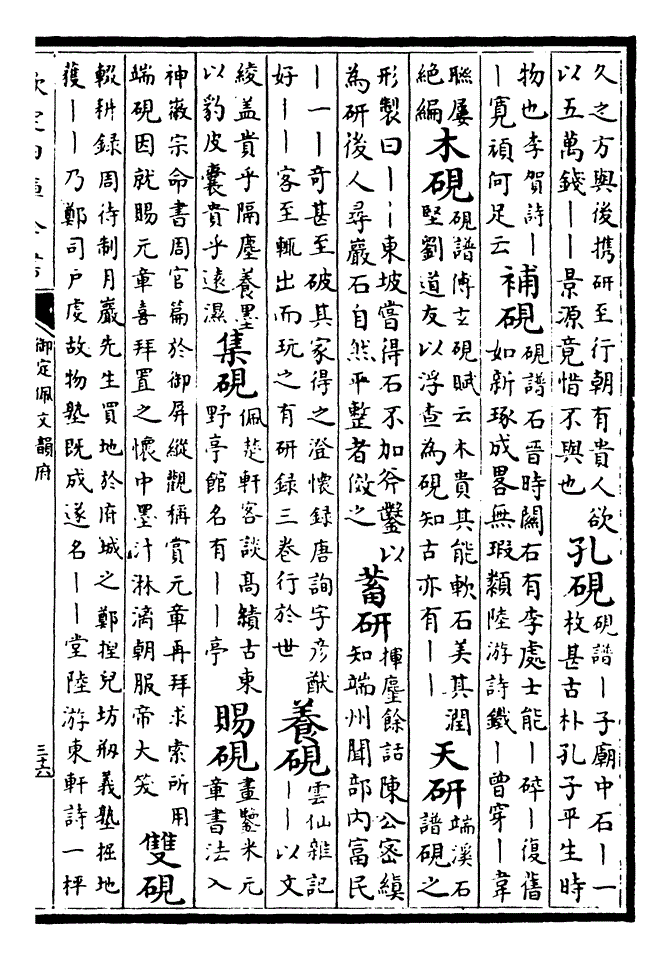 久之方與後攜研至行朝有貴人欲
以五萬錢丨丨景源竟惜不與也
孔硯
硯譜丨子廟中石丨一
枚甚古朴孔子平生時
物也李賀詩丨
丨寛頑何足云
補硯
硯譜石晉時關右有李處士能丨碎丨復舊
如新琢成畧無瑕纇陸游詩鐵丨曾穿丨韋
聨屢
絶編
木硯
硯譜傅玄硯賦云木貴其能軟石美其潤
堅劉道友以浮查為硯知古亦有丨丨
天研
端溪石
譜硯之
形製曰丨丨東坡嘗得石不加斧鑿以
為研後人尋巖石自然平整者傚之
蓄研
揮麈餘話陳公密縝
知端州聞部内富民
丨一丨奇甚至破其家得之澄懷録唐詢字彦猷
好丨丨客至輒出而玩之有研録三巻行於世
養硯
雲仙雜記
丨丨以文
綾盖貴乎隔塵養墨
以豹皮囊貴乎逺濕
集硯
佩楚軒客談髙續古東
野亭館名有丨丨亭
賜硯
畫鑒米元
章書法入
神徽宗命書周官篇於御屏縱觀稱賞元章再拜求索所用
端硯因就賜元章喜拜置之懷中墨汁淋漓朝服帝大笑
雙硯
輟耕録周待制月巖先生買地於府城之鄭捏兒坊剏義塾掘地
獲丨丨乃鄭司户虔故物塾既成遂名丨丨堂陸游東軒詩一枰
欽定四庫全書
御定佩文韻府
三十六